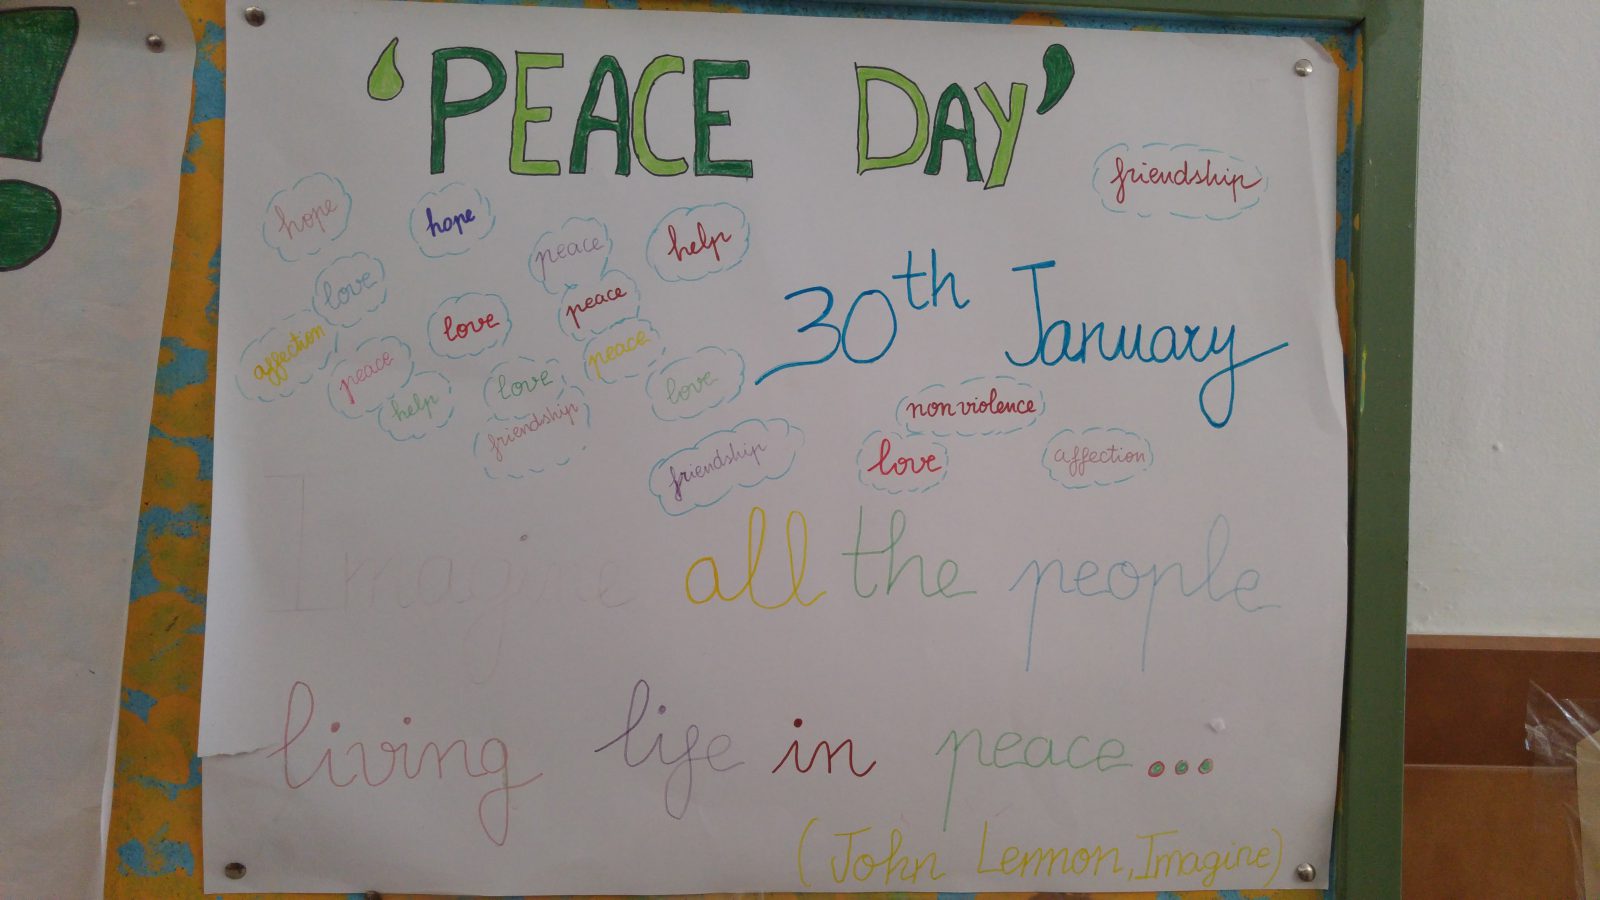 !
'PEACE DAY'
friendship
hope
hope
peace
help
love
love
peace
affection
peace
peace
help
love
love
friendship
friendship
30th January
non violence
love
affection
Imagine all the people
living life in peace...
(John Lennon, Imagine)